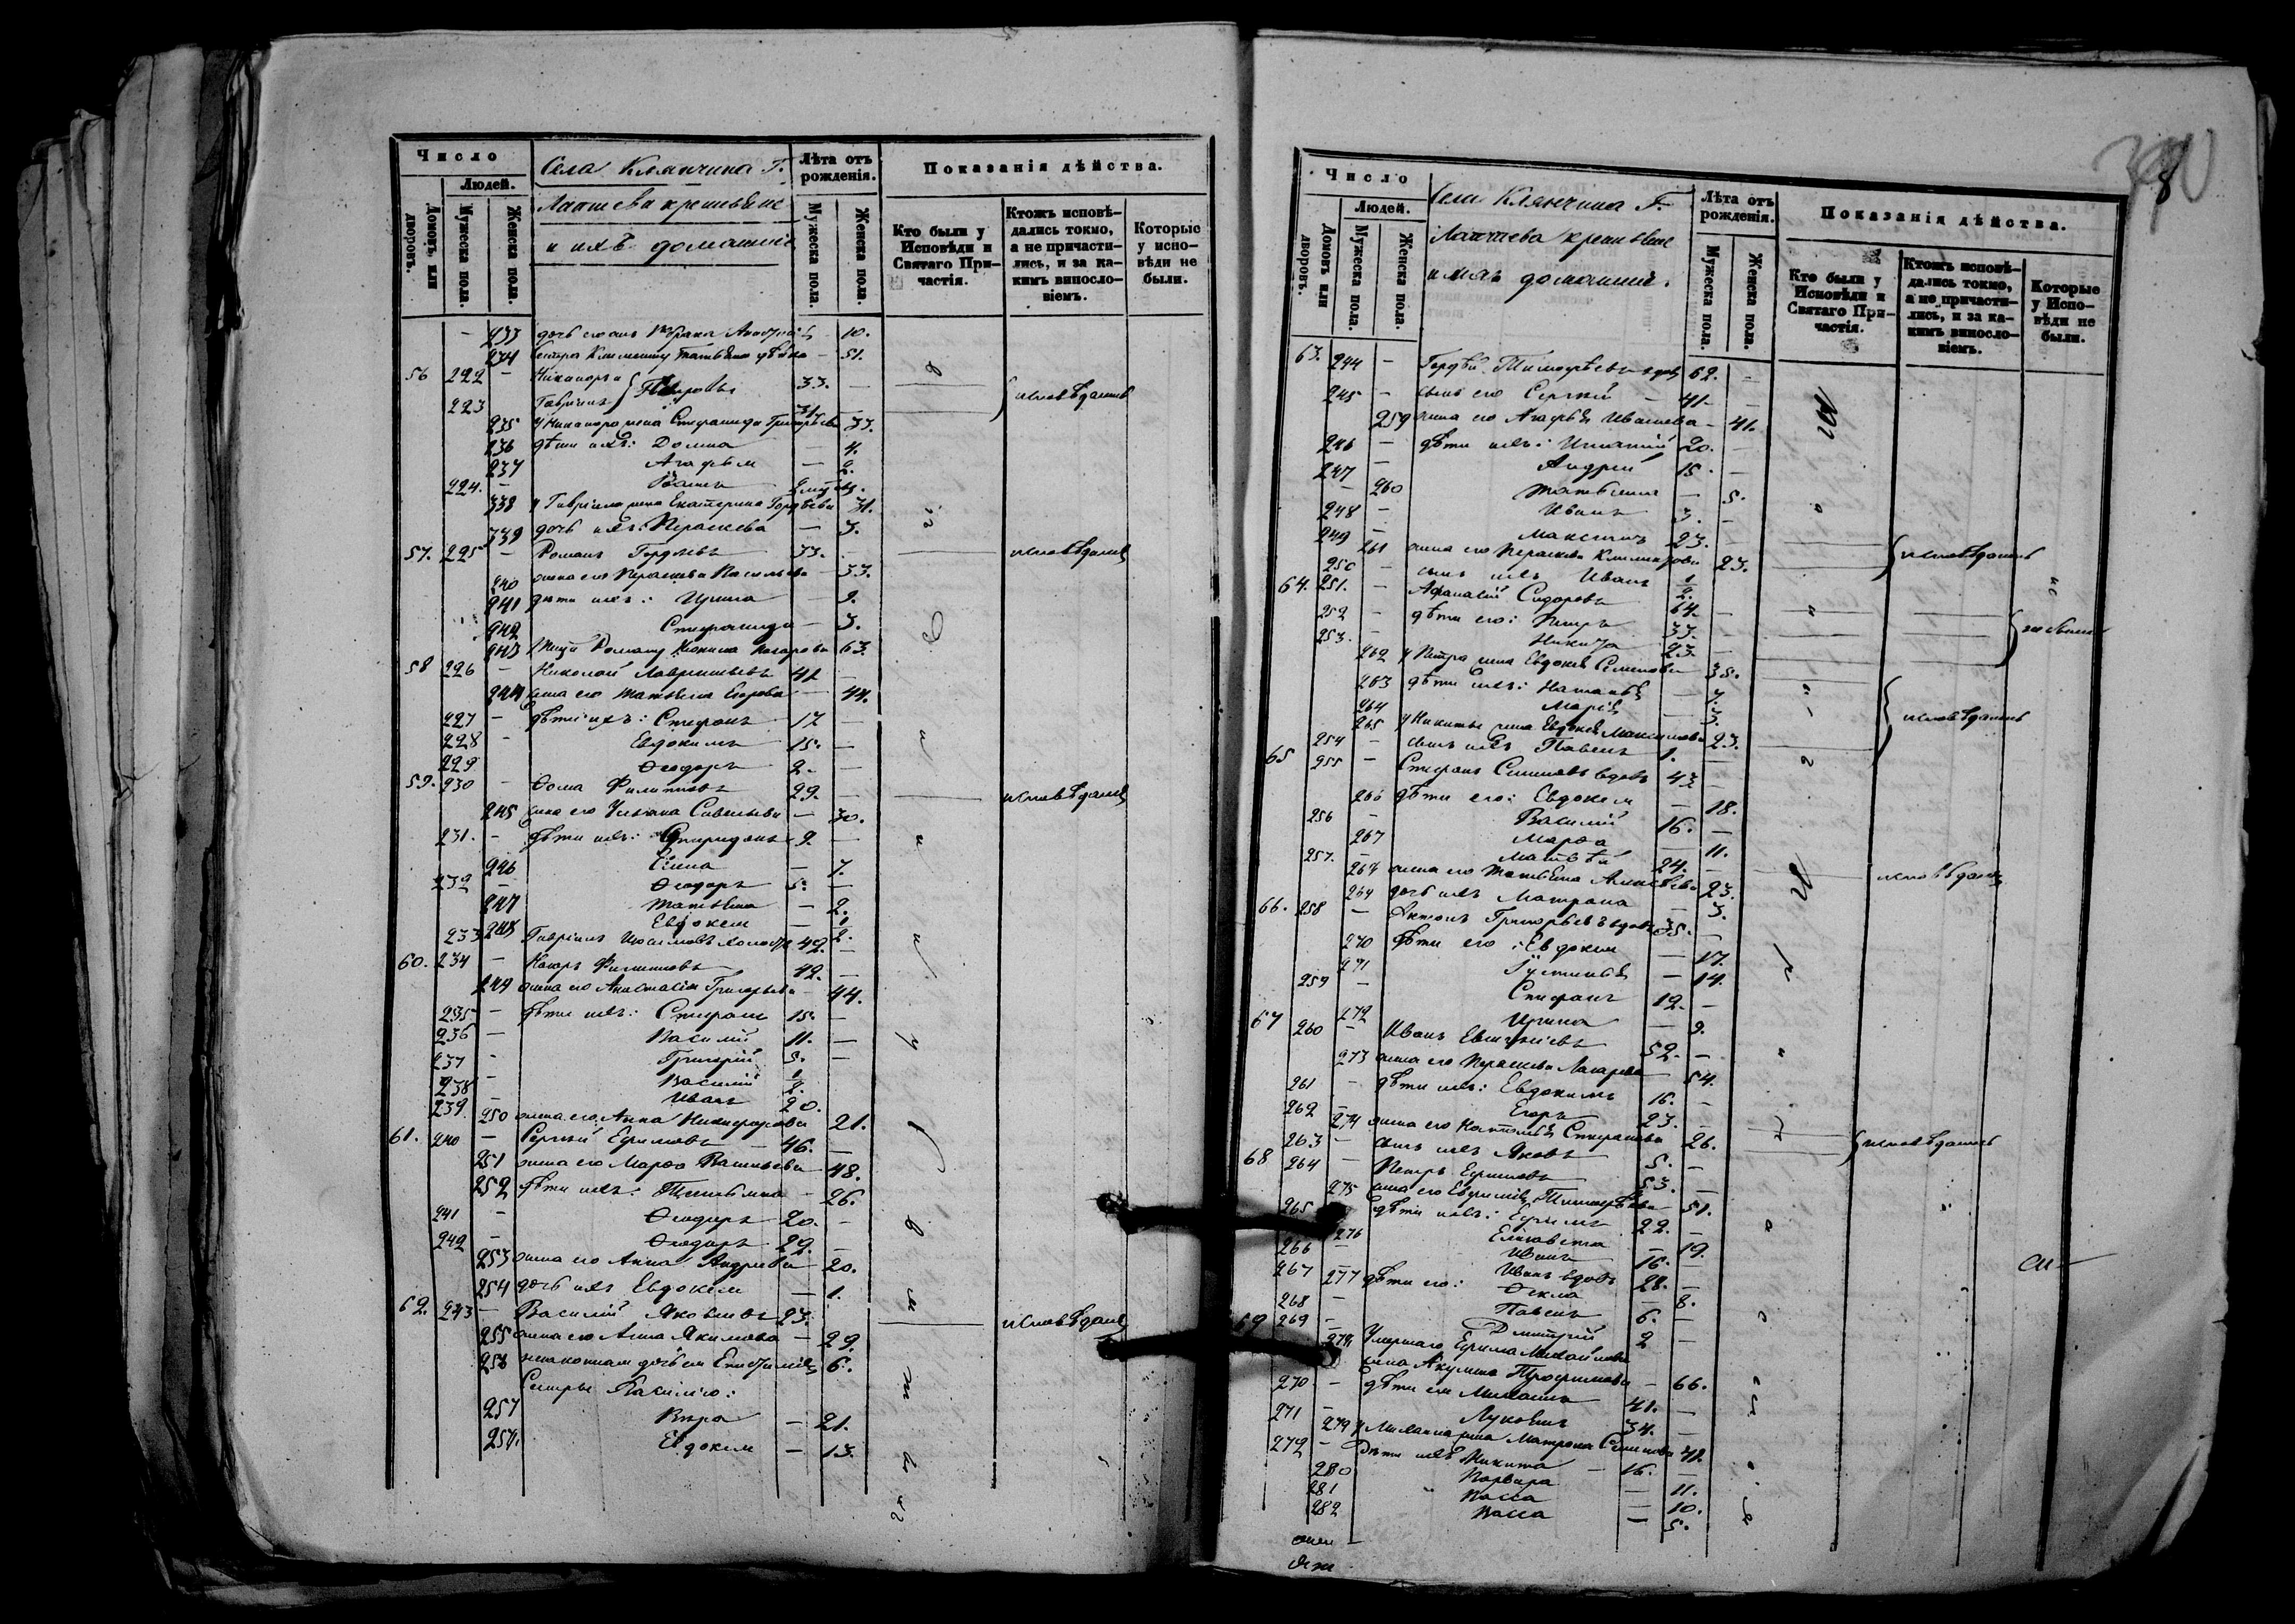 Число
Людей.
Домовъ или дворовъ.
Мужеска пола.
Женска пола.
Села Клянчина Г.
Лаптева крестьяне
и ихъ домашніе
Лѣта отъ рожденія.
Мужеска пола.
Женска пола.
Показанія дѣйства.
Кто были у Исповѣди и Святаго Причастія.
Ктожъ исповѣдались токмо, а не причастились, и за какимъ винословіемъ.
Которые у исповѣди не были.
233 дочь его 10.
234 Сестра Татьяна дѣвка — 51.
56 222 — Никаноръ 33. —
223 Гавріилъ } Петровы 31. — исповѣдались
235 у Никанора жена Степанида Григорьева 33.
236 дѣти ихъ: Домна — 4.
237 Агафья — 2.
224. —
338 у Гавріила жена Екатерина Гордѣева 31.
339 дочь ихъ Параскева — 3.
57. 225 — Романъ Гордѣевъ 33. исповѣдались
240 жена его Параскева Васильева — 33.
241 дѣти ихъ: Ирина — 9.
242 Степанида — 3.
243 Роману 63.
58 226 — Николай Лаврентьевъ 42 —
244 жена его Татьяна Егорова — 44.
227 — дѣти ихъ: Стефанъ 17 —
228 — Евдокимъ 15. —
229 Ѳеодоръ 2. —
59. 230 — Ѳома Филиповъ 29. — исповѣдались
245 жена его Ульяна Савельева — 30.
231. — дѣти ихъ: Спиридонъ 9 —
246 Елена — 7.
232 — Ѳеодоръ 5. —
247 Татьяна — 2.
248 Евдокея — 1/2.
233 Гавріилъ 42. —
60. 234 — Филиповъ 42. —
249 жена его Анастасія Григорьева — 44.
235 — дѣти ихъ: Стефанъ 15. —
236 — Василій 11. —
237 — Григорій 5. —
238 — Василій 1/2.
239. — Иванъ 20.
250 жена его Анна Никифорова 21.
61. 240 — Сергѣй Ефимовъ — 46. —
251 жена его Марѳа Васильева — 48.
252 дѣти ихъ: Татьяна — 26.
241 — Ѳеодоръ 20. —
242 — Ѳеодоръ 22. —
253 жена его Анна Андреева — 20.
254 дочь ихъ Евдокея — 1.
62. 243 — Василій Яковлевъ 23. исповѣдались
255 жена его Анна Якимова — 29.
256 незаконная дочь ея 6.
Сестры Василію:
257 Вѣра — 21.
257. Евдокея — 13.
8
Число
Людей.
Домовъ или дворовъ.
Мужеска пола.
Женска пола.
Села Клянчина Г.
Лаптева крестьяне
и ихъ домашніе.
Лѣта отъ рожденія.
Мужеска пола.
Женска пола.
Показанія дѣйства.
Кто были у Исповѣди и Святаго Причастія.
Ктожъ исповѣдались токмо, а не причастились, и за какимъ винословіемъ.
Которые у Исповѣди не были.
63. 244 — Гордѣй Тимофѣевъ вдовъ 62. —
245 — сынъ его Сергѣй — 41. —
259 жена его Агафья Иванова — 41.
246 — дѣти ихъ: Игнатій 20. —
247 — Андрей 15. —
— 260 Татьяна — 5.
248 — Иванъ 3. —
249 — Максимъ 23. —
261 жена его Параскева 23. исповѣдались
250 — сынъ ихъ Иванъ 1/2.
64. 251. — Афанасій Сидоровъ 64. —
252 — дѣти его: Петръ 33. — не были
253. — Никита 23. —
262 у Петра жена Евдокея Семенова 35.
263 дѣти ихъ: Наталья — 7.
264 Марія — 3.
265 у Никиты жена Евдокея Максимова 23. исповѣдались
254 — сынъ ихъ Павелъ 1. —
65 255 — Стефанъ Семеновъ вдовъ 43 —
266 дѣти его: Евдокея — 18.
256 — Василій 16. —
267 Марѳа — 11.
257. — Матвѣй 24. — исповѣдались
268 жена его Татьяна Алексѣева 23.
269 дочь ихъ Матрона — 3.
66. 258 — Антонъ Григорьевъ вдовъ 35. —
270 дѣти его: Евдокея — 17.
271 Устинья — 14.
259 — Стефанъ 12. —
272 Ирина — 9.
67 260 — Иванъ 52. —
273 жена его Параскева Лазарева — 54.
261 — дѣти ихъ: Евдокимъ 16. —
262 — Егоръ 23. —
274 жена его Наталья Стефанова 26. исповѣдались
263 — сынъ ихъ Яковъ 5. —
68 264 — Петръ Ефимовъ 53. —
275 жена его Евфимія Тимофѣева 51.
265 дѣти ихъ: Ефимъ 22. —
276 Елизавета — 19.
266 — Иванъ 16. —
267 Иванъ вдовъ 28. —
277 дѣти его: Ѳекла — 8.
268 — Павелъ 6. —
269 — Дмитрій 2 —
69 Умершаго Ефима Михайлова
278 жена Акулина Трофимова — 66.
270 — дѣти ея Михаилъ 41. —
271 — 34. —
279 у Михаила жена Матрона Семенова 42
272 — Дѣти ихъ Никита — 16. —
280 Варвара — 11.
281 Васса — 10.
282 Васса — 5.